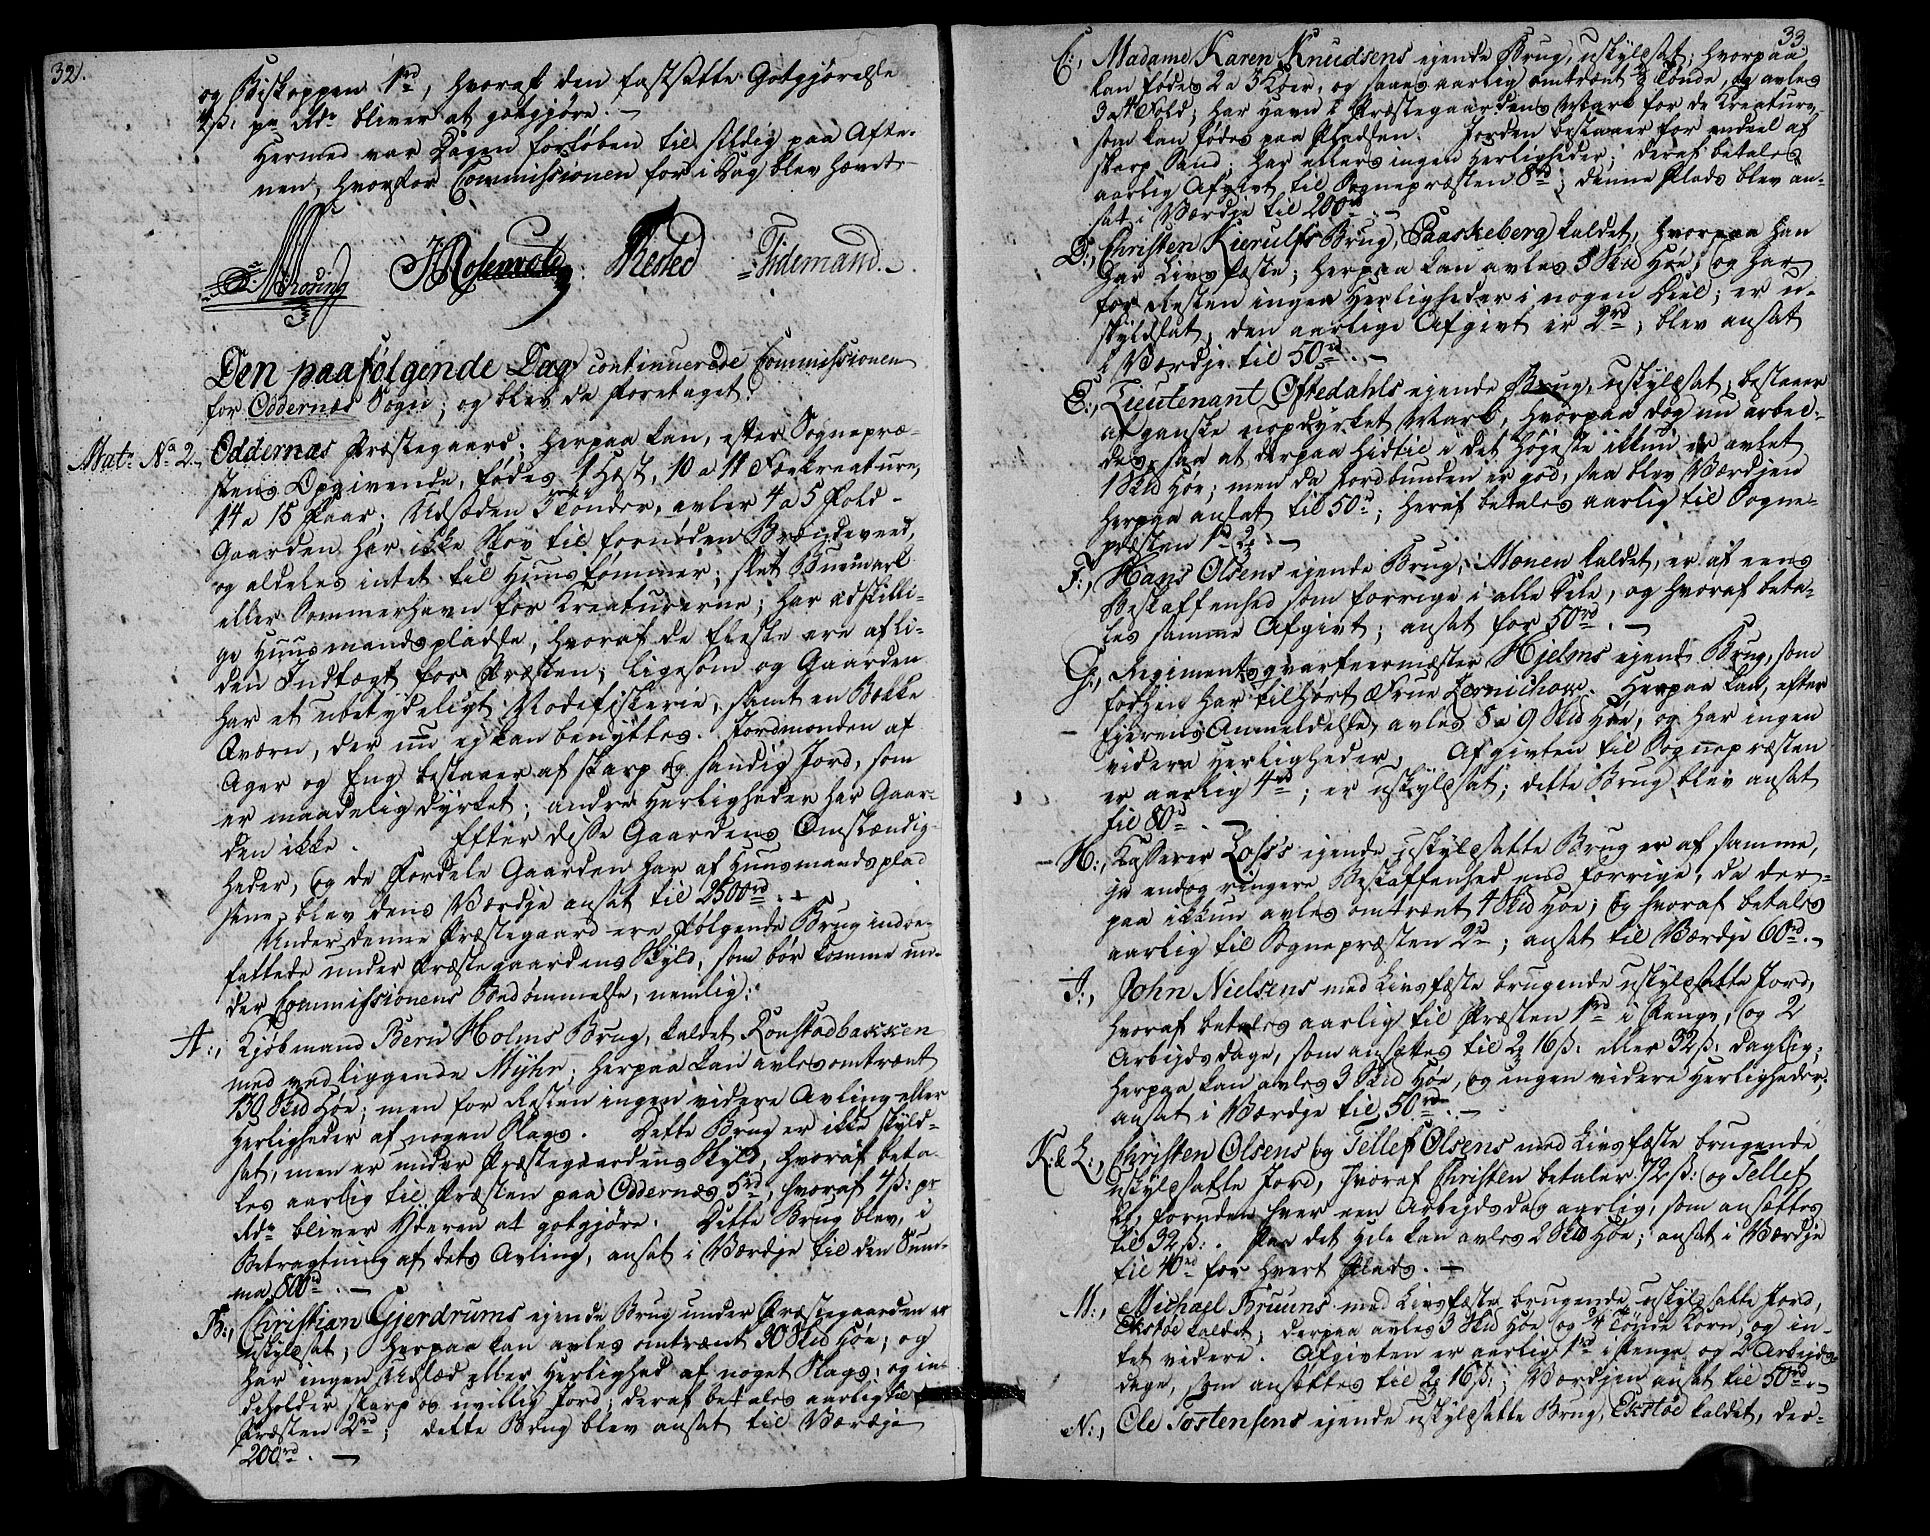 32.
og Biskoppen 1rd, hvoraf den fastsatte Gotgjørelse
4 ß: pr Rdr bliver at gotgjøre. —
Hermed var Dagen forløben til sildig paa Afte-
nen, hvorfor Commissionen for i Dag blev hævet
Rested Tidemand.
Den paafølgende Dag continuerede Commissionen
for Oddernæs Sogn; og blev da foretaget:
Matr No 2. Oddernæs Præstegaard; herpaa kan, efter Sognepræ-
stens Opgivende, fødes 1 Hest, 10 a 11 Fækreature,
14 a 15 Faar; Udsæden 3 Tønder, avler 4 a 5 Fold -
Gaarden har ikke Skov til fornøden Brændeveed,
og aldeles intet til Huus tømmer; slet Buemark
eller Sommerhavn for Kreaturerne; har adskilli-
ge Huusmandspladse, hvoraf de fleste ere afli-
den Indtægt for Præsten; ligesom og Gaarden
har et ubetydeligt Nodefiskerie, samt en Bække
Qværn, der nu ej kan benyttes. Jordmonden af
Ager og Eng bestaaer af skarp og sandig Jord, som
er maadelig dyrket; andre Herligheder har Gaar-
den ikke. Efter disse Gaardens Omstændig-
heder, og de Fordele Gaarden har af Huusmandsplad
sene, blev dens Værdje ansat til 2500rd. —
Under denne Præstegaard ere følgende Brug indbe-
fattede under Præstegaardens Skyld, som bør komme un-
der Commissionens Bedømmelse, nemlig:
A:, Kjøbmand Bern Holms Brug, kaldet Konstadbakken
med vedliggende Myhr; herpaa kan avles omtrent
130 Skd Høe; men for Resten ingen videre Avling eller
Herligheder af nogen Slags. Dette Brug er ikke skyld-
sat, men er under Præstegaardens Skyld, hvoraf beta-
les aarlig til Præsten paa Oddernæs 5rd, hvoraf 4 ß: pr
Rdr bliver Yderen at gotgjøre. Dette Brug blev, i
Betragtning af dets Avling, ansat i Værdje til den Sum-
ma 800rd. —
B:, Christian Gjerdrums ejende Brug under Præstegaarden er
uskyldsat; herpaa kan avles omtrent 30 Skd Høe; og
har ingen Udsæd eller Herlighed af noget Slags; og in-
deholder skarp og uvillig Jord; deraf betales aarlig til
Præsten 2rd; dette Brug blev ansat til Værdje
200rd. —
33.
C:, Madame Karen Knudsens ejende Brug, uskyldsat; hvorpaa
kan fødes 2 a 3 Køer, og saaes aarlig omtrent ½ Tønde, og avles
3 a 4 Fold; har Havn i Præstegaardens Mark for de Kreature,
som kan fødes paa Pladsen. Jorden bestaaer for endeel af
skarp Sand; har ellers ingen Herligheder; deraf betales
aarlig Afgivt til Sognepræsten 8rd; denne Plads blev an-
sat i Værdje til 200rd. —
D:, Christen Kierulfs Brug, Paaskeberg kaldet, hvorpaa han
har Livsfæste; herpaa kan avles 5 Skd Høe; og har
for Resten ingen Herligheder i nogen Deel; er u-
skyldsat, den aarlige Afgivt er 2rd; blev ansat
i Værdje til 50rd. —
E:, Lieutenant Øftedahls ejende Brug, uskyldsat; bestaaer
af ganske uopdyrket Mark, hvorpaa dog nu arbei-
des, saa at derpaa hidtil i det Højeste ikkun er avlet
1 Skd Høe; men da Jordbunden er god, saa blev Værdjen
herpaa ansat til 50rd; heraf betales aarlig til Sogne-
præsten 1rd 2
F:, Hans Olsens ejende Brug, Monen kaldet, er af eens
Beskaffenhed som forrige i alle Dele, og hvoraf beta-
les samme Afgivt; ansat for 50rd. —
G:, Regimentsqvarteermester Hjelms ejende Brug, som
forhen har tilhørt Frue Zernichow. Herpaa kan, efter
Ejerens Anmeldelse, avles 8 a 9 Skd Høe, og har ingen
videre Herligheder, Afgivten til Sognepræsten
er aarlig 4rd; er uskyldsat; dette Brug blev ansat
til 80rd. —
H:, Kasserer Loss's ejende uskyldsatte Brug er af samme,
ja endog ringere Beskaffenhed end forrige, da der-
paa ikkun avles omtrent 4 Skd Høe; og hvoraf betales
aarlig til Sognepræsten 2rd; ansat til Værdje 60rd. —
I:, John Nielsens med Livsfæste brugende uskyldsatte Jord,
hvoraf betales aarlig til Præsten 1rd i Penge, og 2
Arbejdsdage, som ansættes til 2 16 ß: eller 32 ß: daglig;
herpaa kan avles 3 Skd Høe, og ingen videre Herligheder;
ansat i Værdje til 50rd. —
K: & L:, Christen Olsens og Tellef Olsens med Livsfæste brugende
uskyldsatte Jord, hvoraf Christen betaler 72 ß: og Tellef
foruden hver een Arbejdsdag aarlig, som ansættes
til 32 ß:. Paa det Hele kan avles 2 Skd Høe; ansat i Værdje
til 40rd for hvert Plads. —
M:, Michael Bruuns med Livsfæste brugende uskyldsatte Jord,
Ekstøe kaldet; derpaa avles 3 Skd Høe og ¾ Tønde Korn, og in-
tet videre. Afgivten er aarlig 1rd i Penge og 2 Arbejds-
dage, som ansættes til 2 16 ß:; Værdjen ansat til 50rd. —
N:, Ole Tostensens ejende uskyldsatte Brug, Ekstøe kaldet, der-